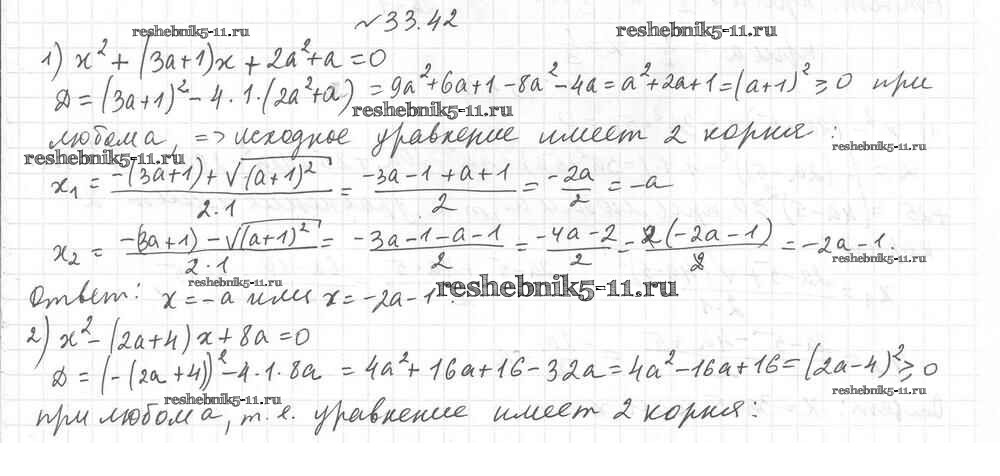 №33.42
reshebnik5-11.ru reshebnik5-11.ru
1) x² + (3a+1)x + 2a² + a = 0
Д = (3a+1)² - 4·1·(2a²+a) = 9a² + 6a + 1 - 8a² - 4a = a² + 2a + 1 = (a+1)² ≥ 0 при
reshebnik5-11.ru
любом a, => исходное уравнение имеет 2 корня:
reshebnik5-11.ru reshebnik5-11.ru
x₁ = (-(3a+1) + √(a+1)²)/(2·1) = (-3a-1+a+1)/2 = -2a/2 = -a
x₂ = (-(3a+1) - √(a+1)²)/(2·1) = (-3a-1-a-1)/2 = (-4a-2)/2 = 2(-2a-1)/2 = -2a-1.
reshebnik5-11.ru reshebnik5-11.ru
Ответ: x = -a или x = -2a-1.
reshebnik5-11.ru
2) x² - (2a+4)x + 8a = 0
Д = (-(2a+4))² - 4·1·8a = 4a² + 16a + 16 - 32a = 4a² - 16a + 16 = (2a-4)² ≥ 0
reshebnik5-11.ru reshebnik5-11.ru
при любом a, т.е. уравнение имеет 2 корня: